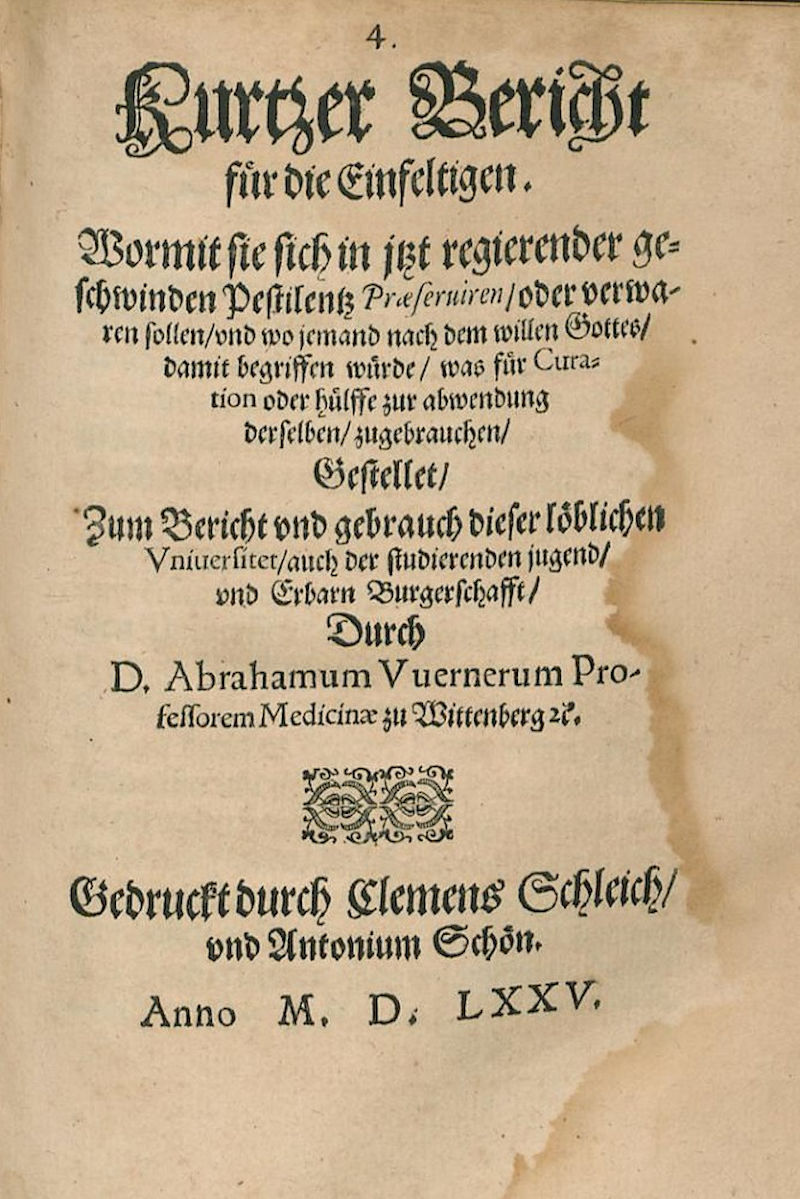 4.
Kurtzer Bericht
für die Einfeltigen.
Wormit sie sich in jtzt regierender ge=
schwinden Pestilentz Præseruiren/oder verwa-
ren sollen/vnd wo jemand nach dem willen Gottes/
damit begriffen würde/ was für Cura=
tion oder hülffe zur abwendung
derselben/zugebrauchen/
Gestellet/
Zum Bericht vnd gebrauch dieser löblichen
Vniuersitet/auch der studierenden jugend/
vnd Erbarn Burgerschafft/
Durch
D. Abrahamum Vuernerum Pro-
fessorem Medicinæ zu Wittenberg ꝛc.
Gedruckt durch Clemens Schleich/
vnd Antonium Schön.
Anno M. D. LXXV.